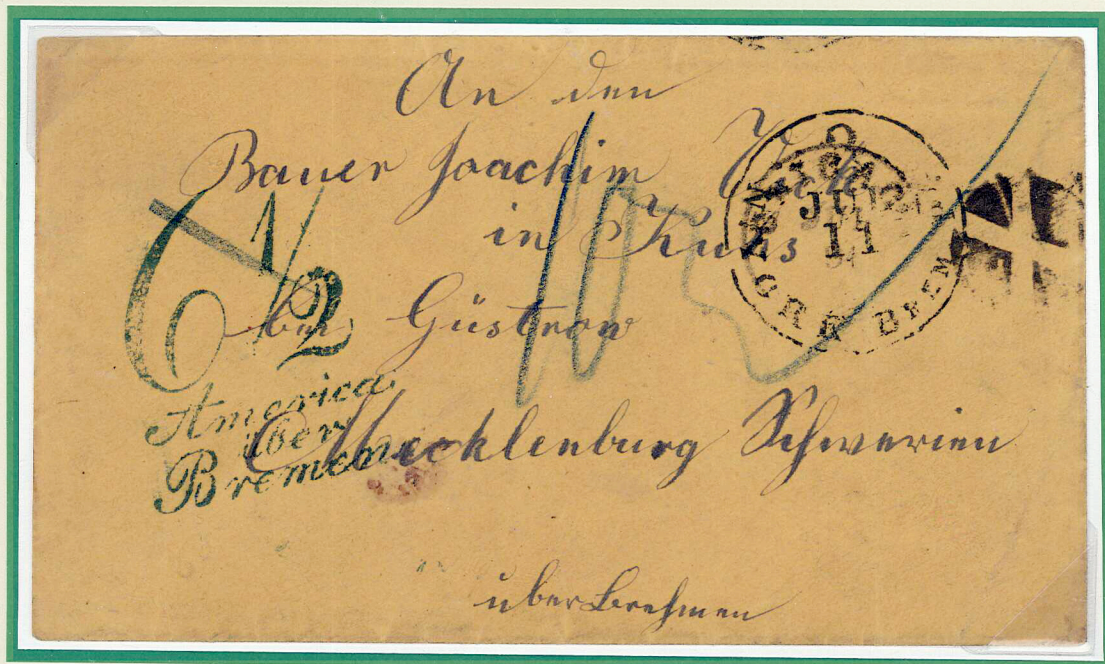 An den
Bauer Joachim
in
bei Güstrow
Mecklenburg Schwerien
über Brehmen
6 1/2
America
über
Bremen
10
CHICAGO
JUL
11
BREM